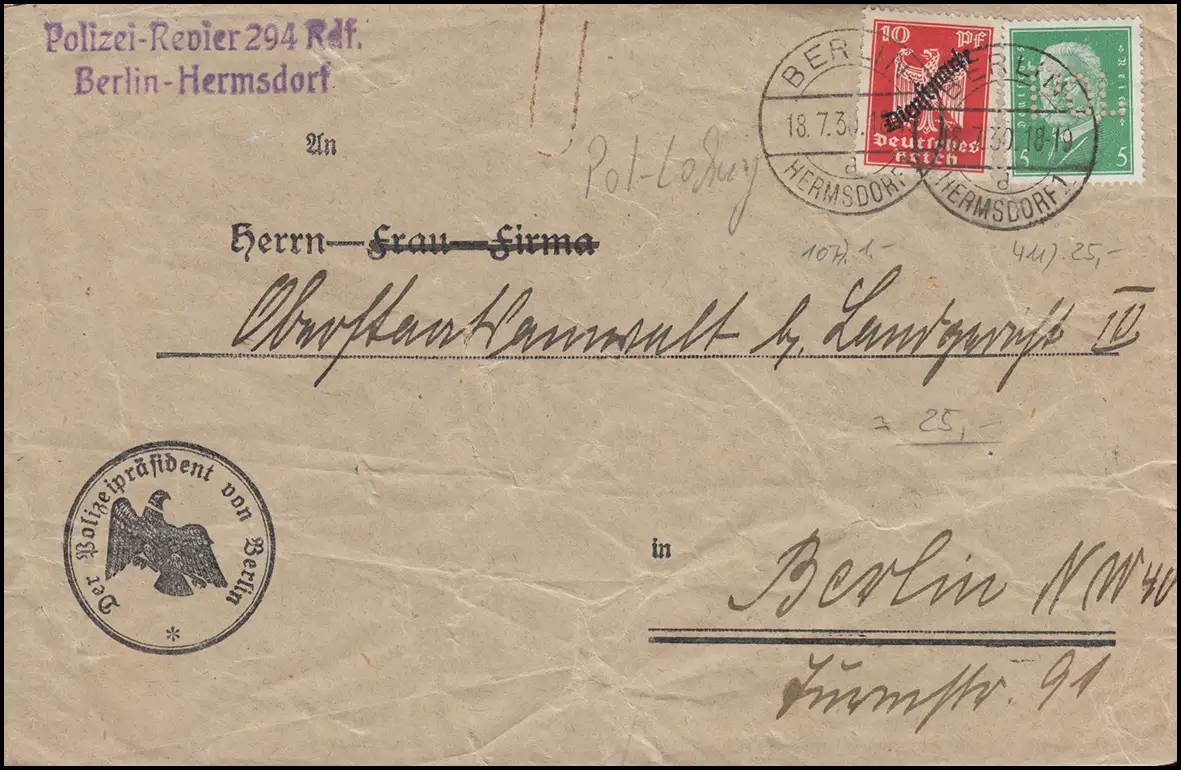 Polizei-Revier 294 Rdf.
Berlin-Hermsdorf
10 PF
Dienstmarke
Deutsches
Reich
5 5
BERLIN
18.7.30.
HERMSDORF
a
BERLIN
18.7.30.18-19
a
HERMSDORF 1
An
Herrn—Frau—Firma
Oberstaatsanwalt b. Landgericht III
= 25,-
Der Polizeipräsident von Berlin
*
in
Berlin NW 40
Turmstr. 91
25,-